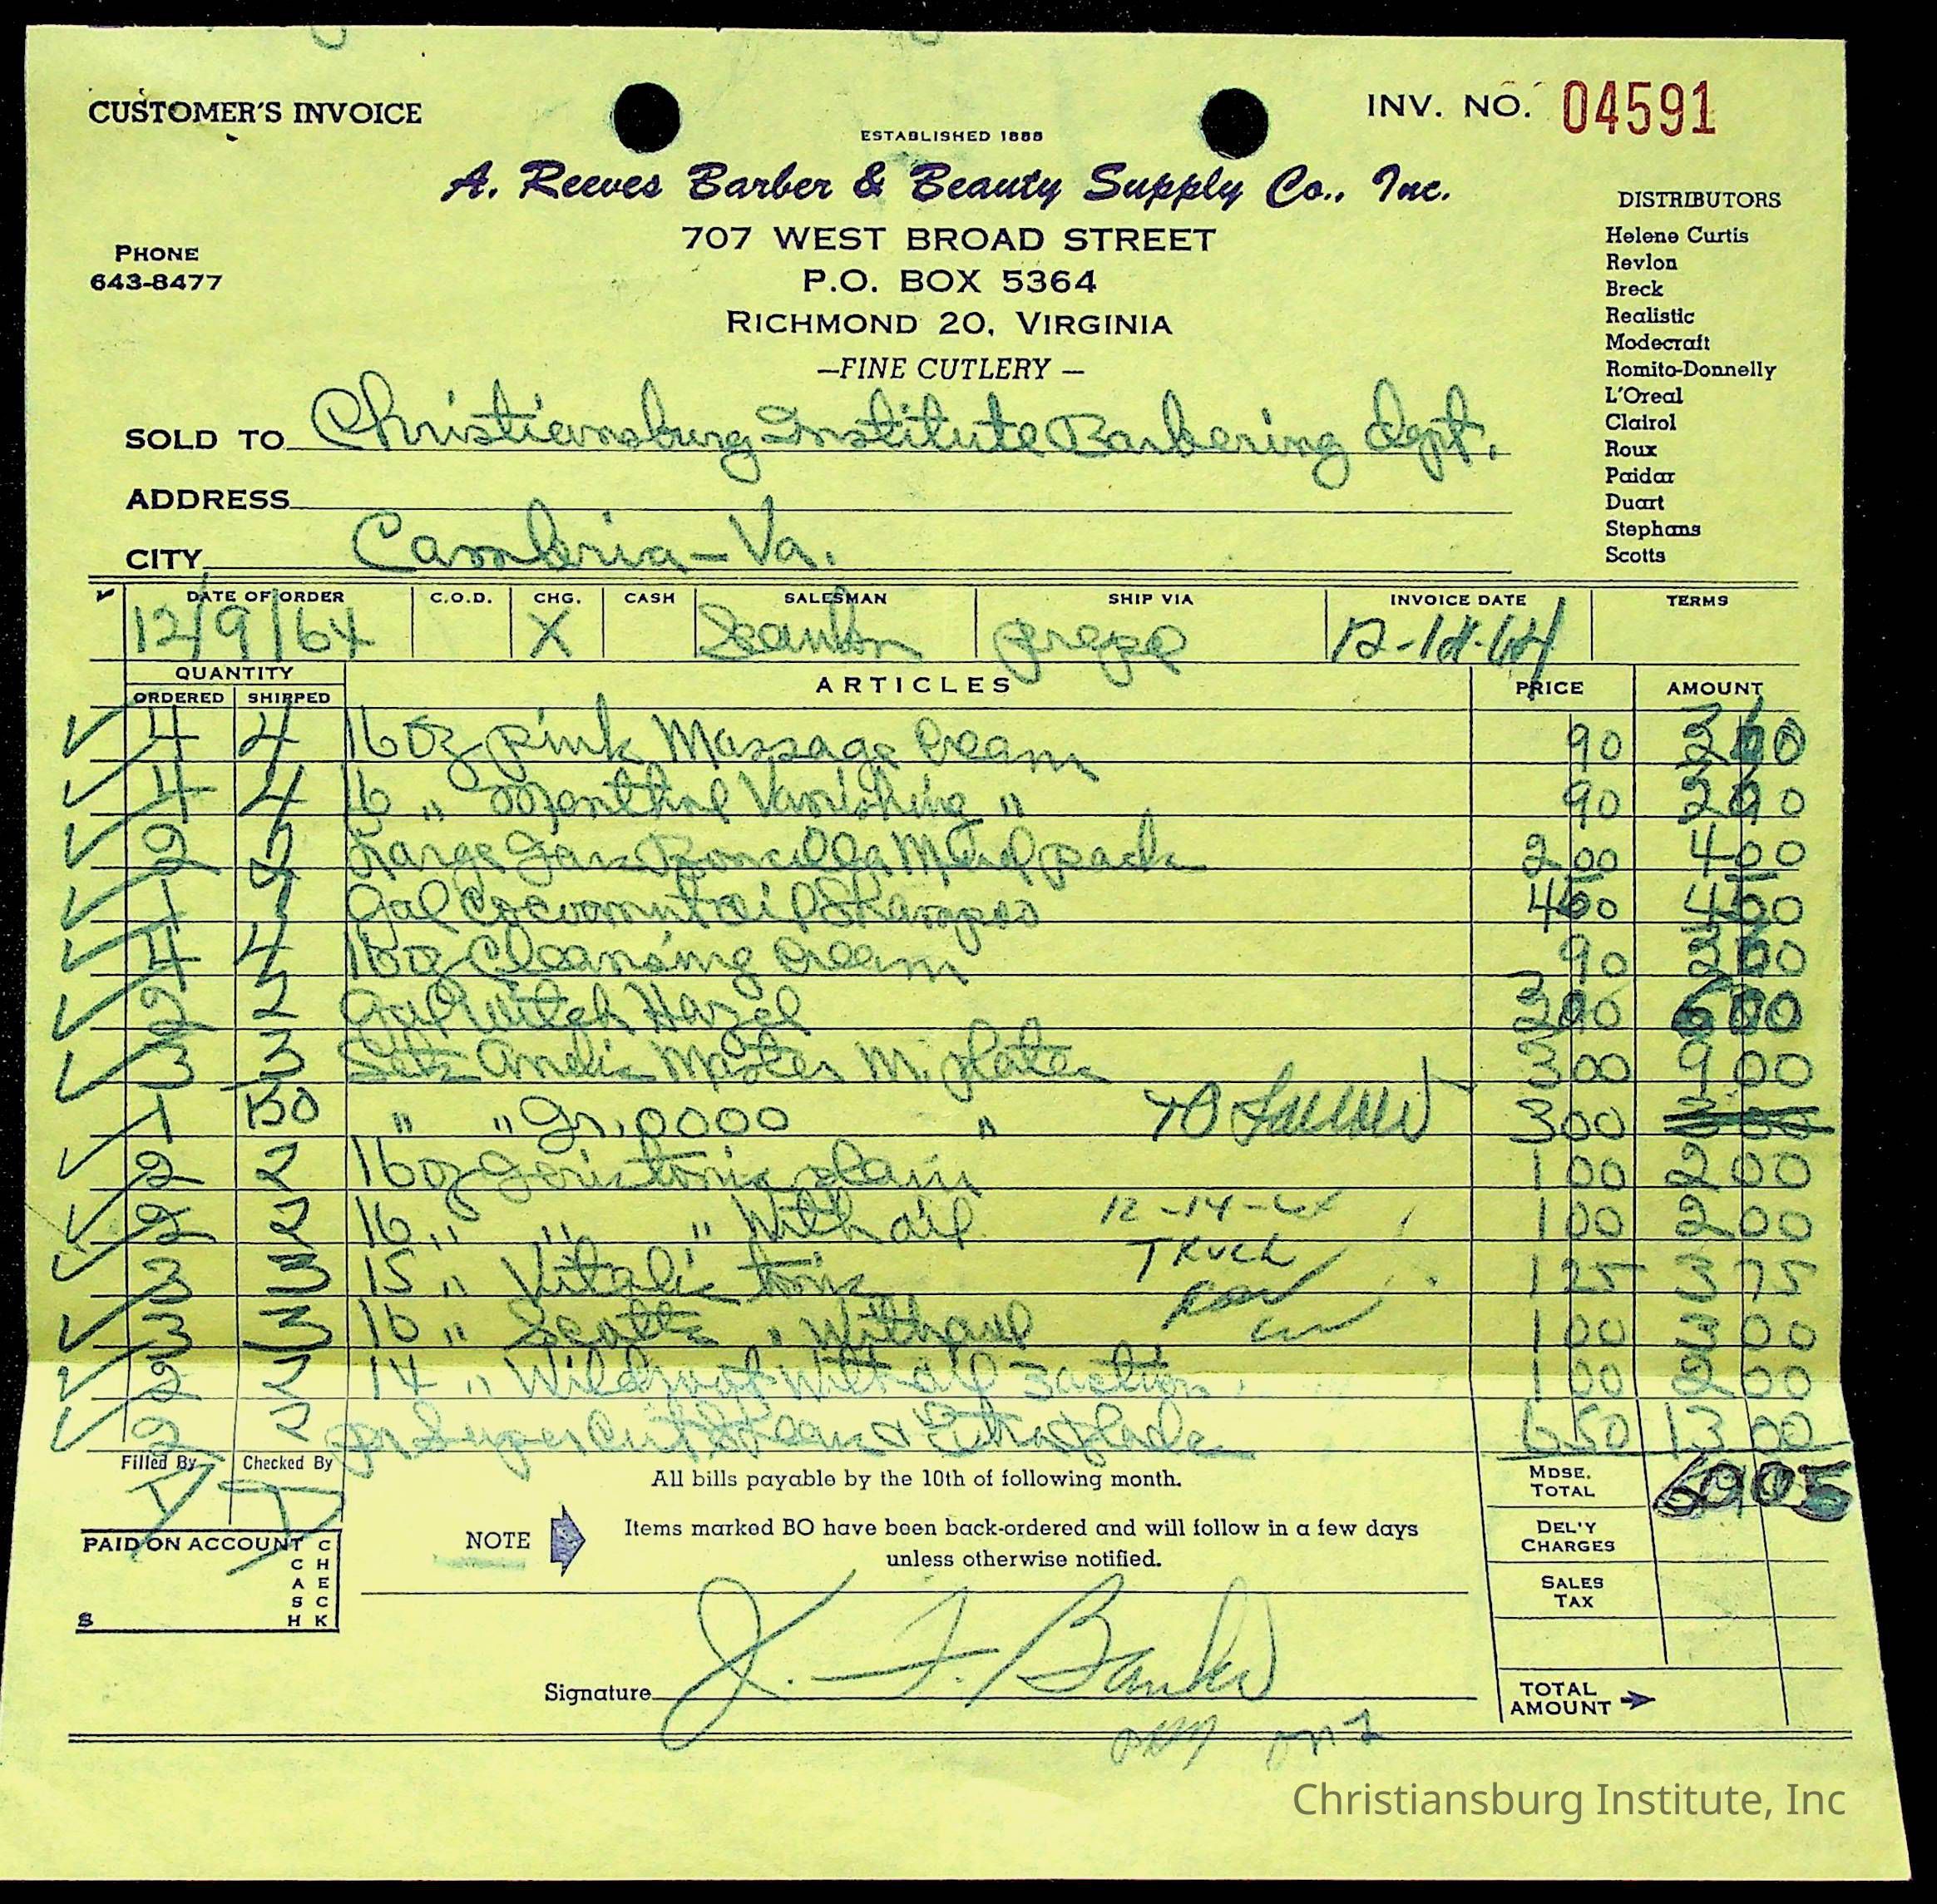 CUSTOMER'S INVOICE
INV. NO. 04591
ESTABLISHED 1888
A. Reeves Barber & Beauty Supply Co., Inc.
707 WEST BROAD STREET
P.O. BOX 5364
RICHMOND 20, VIRGINIA
—FINE CUTLERY—
PHONE
643-8477
DISTRIBUTORS
Helene Curtis
Revlon
Breck
Realistic
Modecraft
Romito-Donnelly
L'Oreal
Clairol
Roux
Paidar
Duart
Stephans
Scotts
SOLD TO Christiansburg Institute Barbering dept.
ADDRESS
CITY Cambria - Va.
DATE OF ORDER C.O.D. CHG. CASH SALESMAN SHIP VIA INVOICE DATE TERMS
12/9/64 X prepp 12-14-64
QUANTITY
ORDERED SHIPPED ARTICLES PRICE AMOUNT
4 4 16 oz pink Massage Cream 90
4 4 16 " Menthol Vanishing " 90
2 2 Large Jars Boncilla Mud pack 2 00 4 00
1 1 Gal Cocoanut oil Shampoo 4 00 4 00
4 4 16 oz Cleansing Cream 90
2 2 Gal Witch Hazel 3 00 6 00
3 3 Sets Andis Master M. plates 3 00 9 00
1 BO " " gr. 0000 " TO Follow 3 00 3 00
2 2 16 oz Jeris tonic plain 1 00 2 00
2 2 16 " " " With oil 1 00 2 00
3 3 15 " Vitalis tonic 1 25 3 75
3 3 16 " Scotts " Without 1 00 3 00
2 2 14 " Wildroot With oil 3 action 1 00 2 00
2 2 pr Super Cut Shears & Extra blades 6 50 13 00
12-14-64
TRUCK
Filled By Checked By
All bills payable by the 10th of following month.
MDSE. TOTAL 60 05
PAID ON ACCOUNT
CASH CHECK
$
NOTE Items marked BO have been back-ordered and will follow in a few days
unless otherwise notified.
DEL'Y CHARGES
SALES TAX
Signature J. F. Banks
TOTAL AMOUNT
Christiansburg Institute, Inc